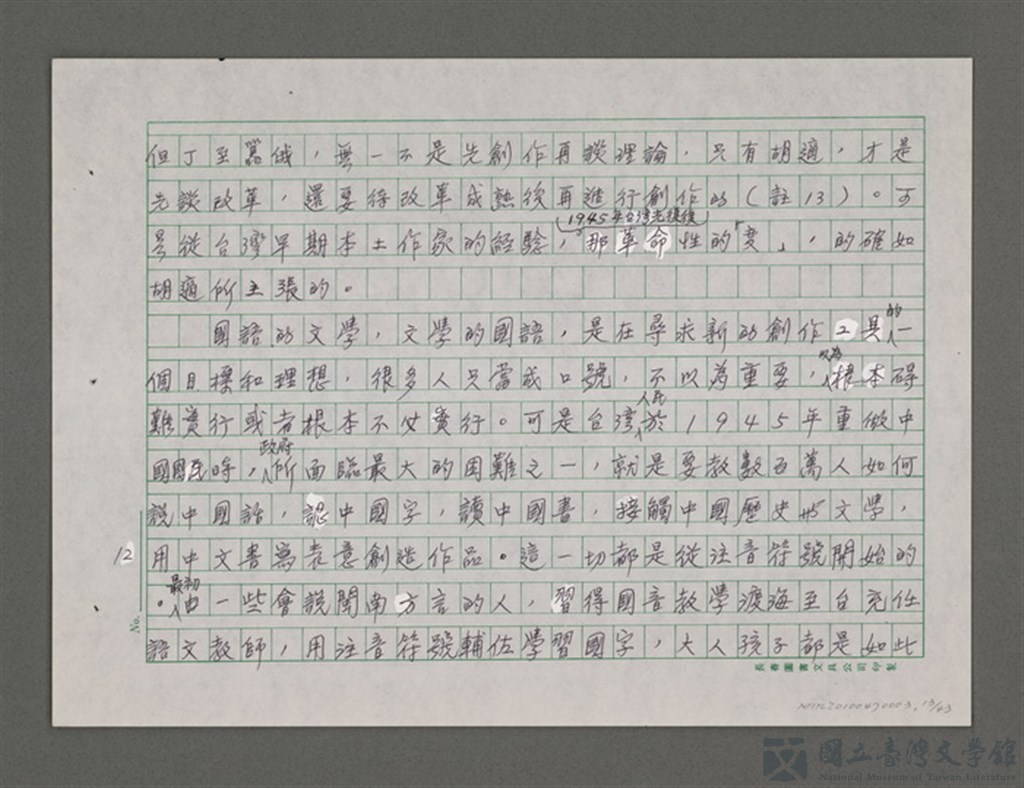 但丁至篤俄，無一不是先創作再談理論，只有胡適，才是
先談改革，還要待改革成熟後再進行創作的（註13）。可
1945年台灣光復後
是從台灣早期本土作家的經驗，那革命性的「度」，的確如
胡適所主張的。
國語的文學，文學的國語，是在尋求新的創作工具的一
個目標和理想，很多人只當成口號，不以為重要，以為根本碍
難實行或者根本不必實行。可是台灣人民於1945年重做中
國國民時，政府所面臨最大的困難之一，就是要教數百萬人如何
說中國話，認中國字，讀中國書，接觸中國歷史與文學，
用中文書寫表意創造作品。這一切都是從注音符號開始的
12
。最初由一些會說閩南方言的人，習得國音教學渡海至台充任
語文教師，用注音符號輔佐學習國字，大人孩子都是如此
No.
長春圖書文具公司印製
NMTL20100470003, 13/43
國立臺灣文學館
National Museum of Taiwan Literature